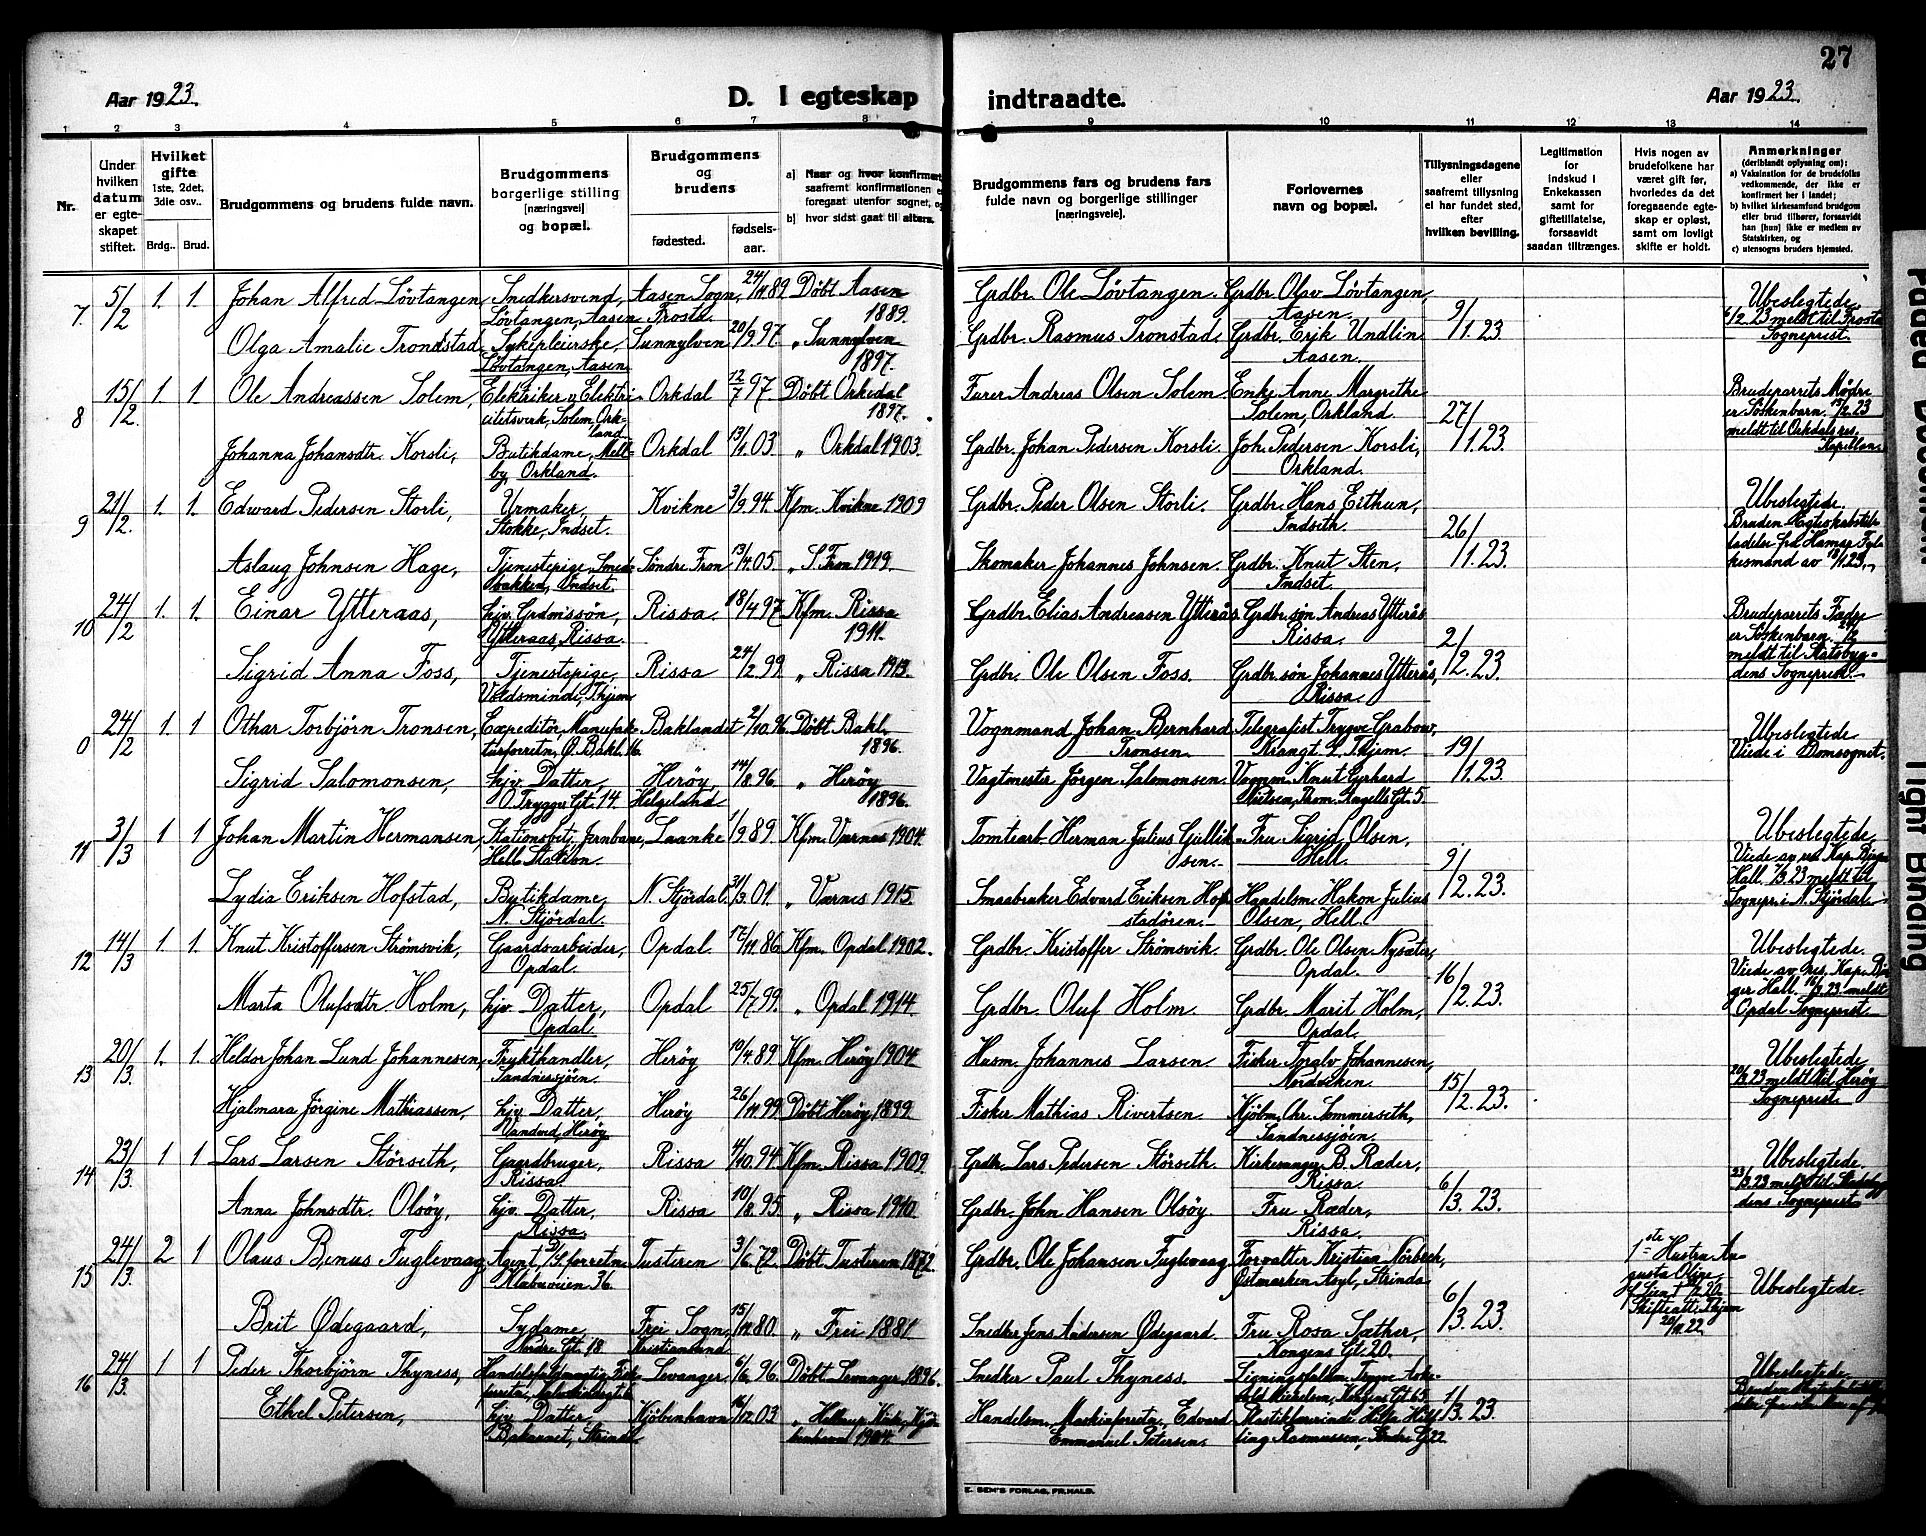 27
Aar 1923.
D. I egteskap indtraadte.
Aar 1923.
1 2 3 4 5 6 7 8 9 10 11 12 13 14
Nr.
Under hvilken datum er egteskapet stiftet.
Hvilket gifte 1ste, 2det, 3die osv..
Brdg.. Brud.
Brudgommens og brudens fulde navn.
Brudgommens borgerlige stilling (næringsvei) og bopæl.
Brudgommens og brudens
fødested. fødselsaar.
a) Naar og hvor konfirmert,
saafremt konfirmationen er
foregaat utenfor sognet, og
b) hvor sidst gaat til alters.
Brudgommens fars og brudens fars
fulde navn og borgerlige stillinger
(næringsveie).
Forlovernes
navn og bopæl.
Tillysningsdagene
eller
saafremt tillysning
ei har fundet sted,
efter
hvilken bevilling.
Legitimation
for
indskud i
Enkekassen
samt for
giftetillatelse,
forsaavidt
saadan tiltrænges.
Hvis nogen av
brudefolkene har
været gift før,
hvorledes da det
foregaaende egte-
skap er opløst,
samt om lovligt
skifte er holdt.
Anmerkninger
(deriblandt oplysning om):
a) Vaksination for de brudefolks
vedkommende, der ikke er
konfirmert her i landet;
b) hvilket kirkesamfund brudgom
eller brud tilhører, forsaavidt
han (hun) ikke er medlem av
Statskirken, og
c) utensogns bruders hjemsted.
7. 5/2 1. 1. Johan Alfred Løvtangen, Snedkersvend, Løvtangen, Aasen Aasen Sogn, Frosta. 24/11 89 Døbt Aasen 1889. Grdbr. Ole Løvtangen. Grdbr. Olav Løvtangen, Aasen. 9/1. 23. Ubeslegtede. 6/2. 23 meldt til Frosta Sogneprest.
Olga Amalie Trondstad, Sykepleierske, Løvtangen, Aasen Sunnylven 20/9. 97. " Sunnylven 1897. Grdbr. Rasmus Tronstad, Grdbr. Erik Undlin Aasen.
8 15/2. 1 1 Ole Andreassen Solem, Elektriker v. Elektricitetsverk, Solem, Orkland Orkdal 12/7 97 Døbt Orkedal 1897. Furer Andreas Olsen Solem Enke Anne Margrethe Solem, Orkland 27/1. 23. Brudeparrets Mødre er Søskenbarn. 15/2. 23 meldt til Orkdals res. Kapellan.
Johanna Johansdtr. Korsli, Butikdame, Melby, Orkland. Orkdal 13/1. 03 " Orkdal 1903. Grdbr. Johan Pedersen Korsli Joh. Pedersen Korsli, Orkland.
9 21/2. 1. 1. Edward Pedersen Storli, Urmaker, Stokke, Indset. Kvikne 3/9. 94. Kfm. Kvikne 1909 Grdbr. Peder Olsen Storli. Grdbr. Hans Eithun, Indseth. 26/1. 23. Ubeslegtede.
Aslaug Johnsen Hage, Tjenestepige, Smedbakken, Indset. Søndre Fron 13/4. 05. " S. Fron 1919 Skomaker Johannes Johnsen. Grdbr. Knut Sten, Indset.
10 24/2 1. 1. Einar Ytteraas, hjv. Grdmssøn, Ytteraas, Rissa. Rissa. 18/4 97 Kfm. Rissa 1911. Grdbr. Elias Andreasen Ytterås Grdbr. søn Andreas Ytterås Rissa. 2/2. 23. Brudeparrets Fadre er Søskenbarn. 24/2 meldt til Statsbygdens Sogneprest.
Sigrid Anna Foss, Tjenestepige, Voldsminde, Thjem Rissa 24/2. 99. " Rissa 1913. Grdbr. Ole Olsen Foss. Grdbr. søn Johannes Ytterås, Rissa.
0 24/2 1. 1 Othar Torbjørn Tronsen, Expeditør, Manufakturforretn., Ø. Bakl. 16 Baklandet 2/10. 96. Døbt Bakl. 1896. Vognmand Johan Bernhard Tronsen. Telegrafist Trygve Grabow, Krangt. 2. Thjem. 19/1. 23. Ubeslegtede Viede i Domsognet.
Sigrid Salomonsen, hjv. Datter, O. Trygv. Gt. 14. Herøy, Helgeland 14/8. 96. " Herøy 1896. Vagtmester Jørgen Salomonsen. Vognm. Knut Gerhard Nielsen, Thom. Angells Gt. 5
11 3/3 1 1 Johan Martin Hermansen, Stationsbetj. Jernbane, Hell Station. Laanke 1/9 89 Kfm. Værnes 1904. Tomtearb. Herman Julius Gulliksen. Fru Sigrid Olsen, Hell. 9/2. 23. Ubeslegtede. Viede av res. Kap. Birger Hall. 7/3. 23 meldt til Sognepr. i N. Stjørdal.
Lydia Eriksen Hofstad, Butikdame, N. Stjørdal. N. Stjørdal. 31/3. 01. " Værnes 1915. Smaabruker Edvard Eriksen Hofstadøren. Handelsm. Hakon Julius Olsen, Hell.
12 14/3 1. 1. Knut Kristoffersen Strømsvik, Gaardsarbeider, Opdal. Opdal. 17/11. 86 Kfm. Opdal 1902. Grdbr. Kristoffer Strømsvik. Grdbr. Ole Olsen Nysæter, Opdal. 16/2. 23. Ubeslegtede. Viede av res. Kap. Birger Hall. 16/3. 23 meldt Opdal Sogneprest.
Marta Olufsdtr. Holm, hjv. Datter, Opdal Opdal 25/7. 99. " Opdal 1914. Grdbr. Oluf Holm. Grdbr. Marit Holm, Opdal.
13 20/3. 1. 1. Heldor Johan Lund Johannesen, Frukthandler, Sandnessjøen. Herøy 10/4. 89 Kfm. Herøy 1904. Husm. Johannes Larsen. Fisker Ingalv Johannesen, Nordviken. 15/2. 23. Ubeslegtede. 20/3. 23 meldt til Herøy Sogneprest.
Hjalmara Jørgine Mathiassen, hjv. Datter, Vandved, Herøy Herøy 26/11. 99. Døbt Herøy 1899 Fisker Mathias Rivertsen Kjøbm. Chr. Sommerseth, Sandnessjøen.
14 23/3. 1 1 Lars Larsen Størseth, Gaardbruger, Rissa. Rissa 4/10. 94. Kfm. Rissa 1909. Grdbr. Lars Pedersen Størseth. Kirkesanger B. Ræder, Rissa. 6/3. 23. Ubeslegtede 23/3. 23 meldt til Stadsbygdens Sogneprest
Anna Johnsdtr. Olsøy, hjv. Datter, Rissa. Rissa 10/8. 95 " Rissa 1910. Grdbr. John Hansen Olsøy Fru Ræder, Rissa.
15 24/3. 2 1 Olaus Benus Fuglevaag, Agent, forretn. Klabuveien 36. Tusteren 3/6. 72. Døbt Tusteren 1872. Grdbr. Ole Johansen Fuglevaag Forvalter Kristian Nørbech, Østmarken Asyl, Strinda 6/3. 23. 1ste Hustru Augusta Oline Lien † 20. Skifteatt. Thjem 20/11. 22 Ubeslegtede.
Brit Ødegaard, Sydame, Nordre Gt. 18 Frei Sogn, Kristiansund 15/11. 80. " Frei 1881 Snedker Jens Andersen Ødegaard. Fru Rosa Sæther, Kongens Gt. 20.
16 24/3. 1 1 Peder Thorbjørn Thyness, Levanger. 6/6. 96. Døbt Levanger 1896. Snedker Paul Thyness. 1/3. 23. Ubeslegtede.
Ethel Petersen, hjv. Datter, Bakaunet, Strinda Kjøbenhavn 16/12. 03 " Hellerup Kirke, Kjøbenhavn 1904. Handelsm. Edvard Emmanuel Petersen.
E. SEM'S FORLAG, FR.HALD.
Tight Binding